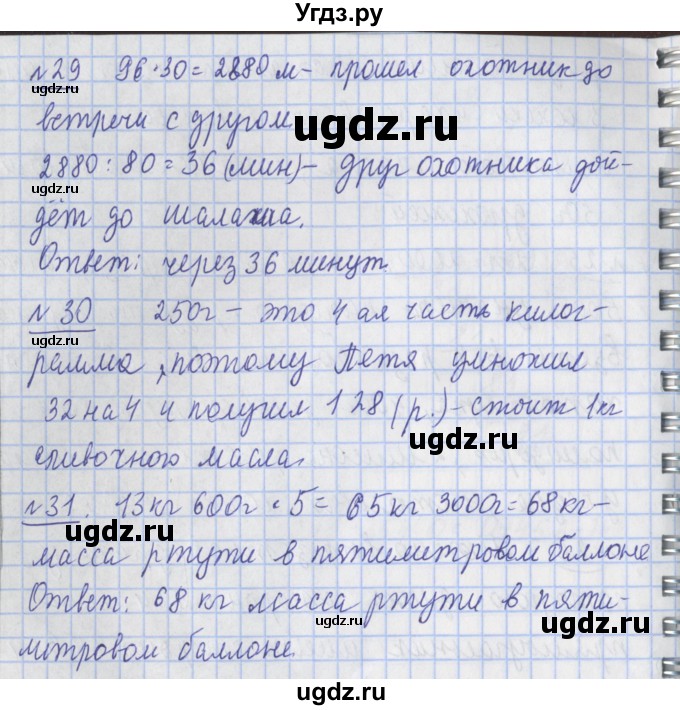 Угдз.ру
№29 96·30=2880 м- прошел охотник до
ugdz.ru
ugdz.ru
встречи с другом
ugdz.ru
2880:80=36(мин)- друг охотника дой-
ugdz.ru
дёт до шалаша.
Ответ: через 36 минут.
ugdz.ru
№30 250г- это 4 ая часть килог-
ugdz.ru
рамма, поэтому Петя умножил
32 на 4 и получил 128(р.)- стоит 1кг
сливочного масла.
ugdz.ru
№31. 13кг 600г·5= 65кг 3000г=68кг-
ugdz.ru
масса ртути в пятилитровом баллоне
Ответ: 68 кг масса ртути в пяти-
ugdz.ru
литровом баллоне.
ugdz.ru
ugdz.ru